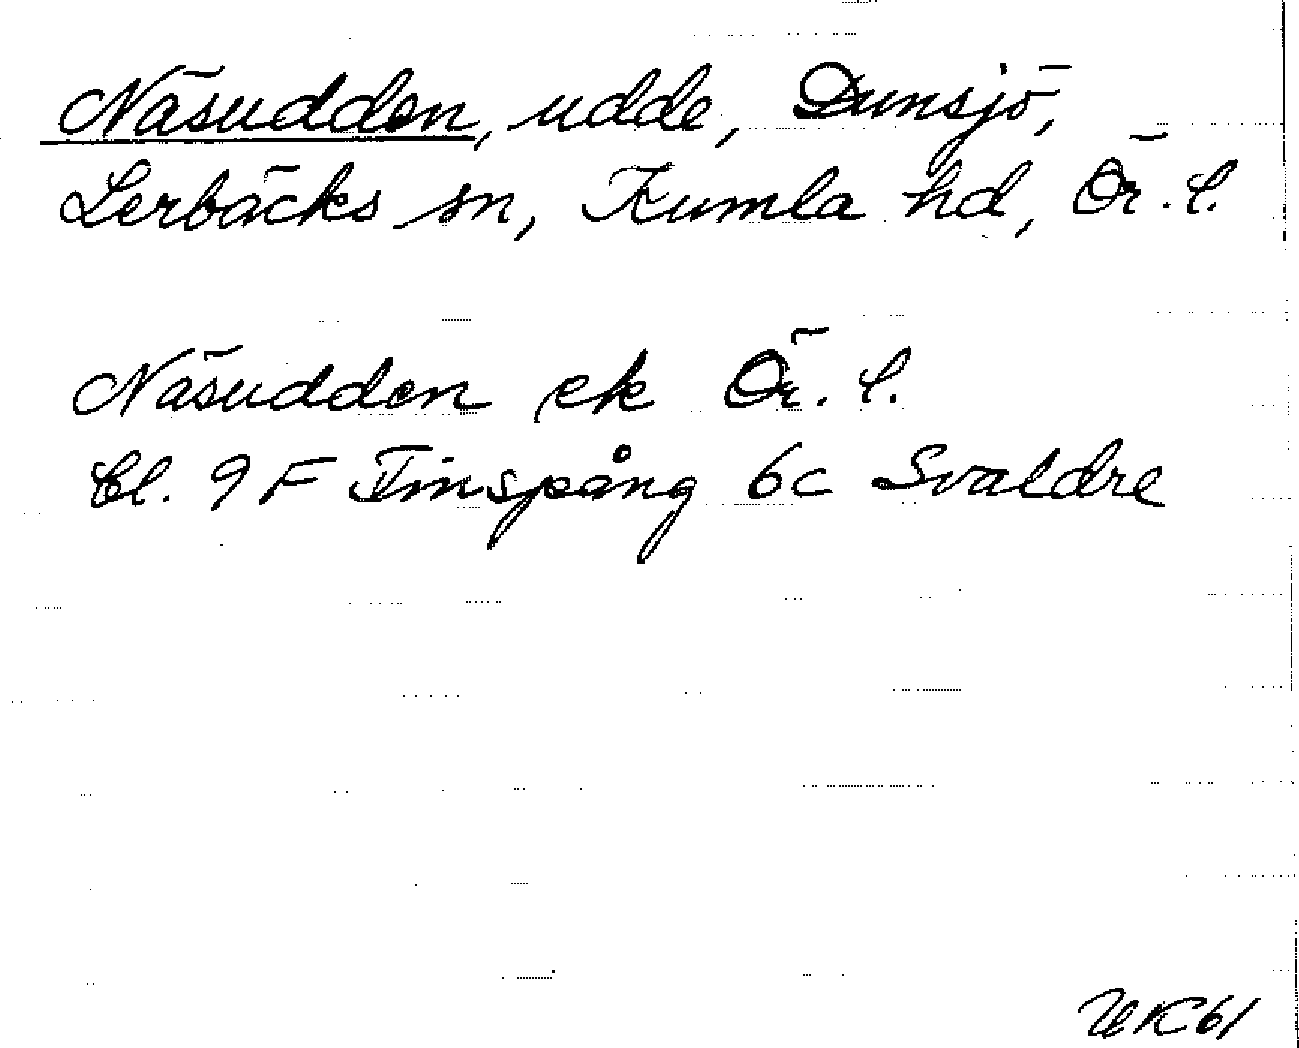 Näsudden, udde, Dunsjö,
Lerbäcks sn, Kumla hd, Ör. l.
Näsudden ek Ör. l.
bl. 9 F Finspång 6c Svaldre
UK61